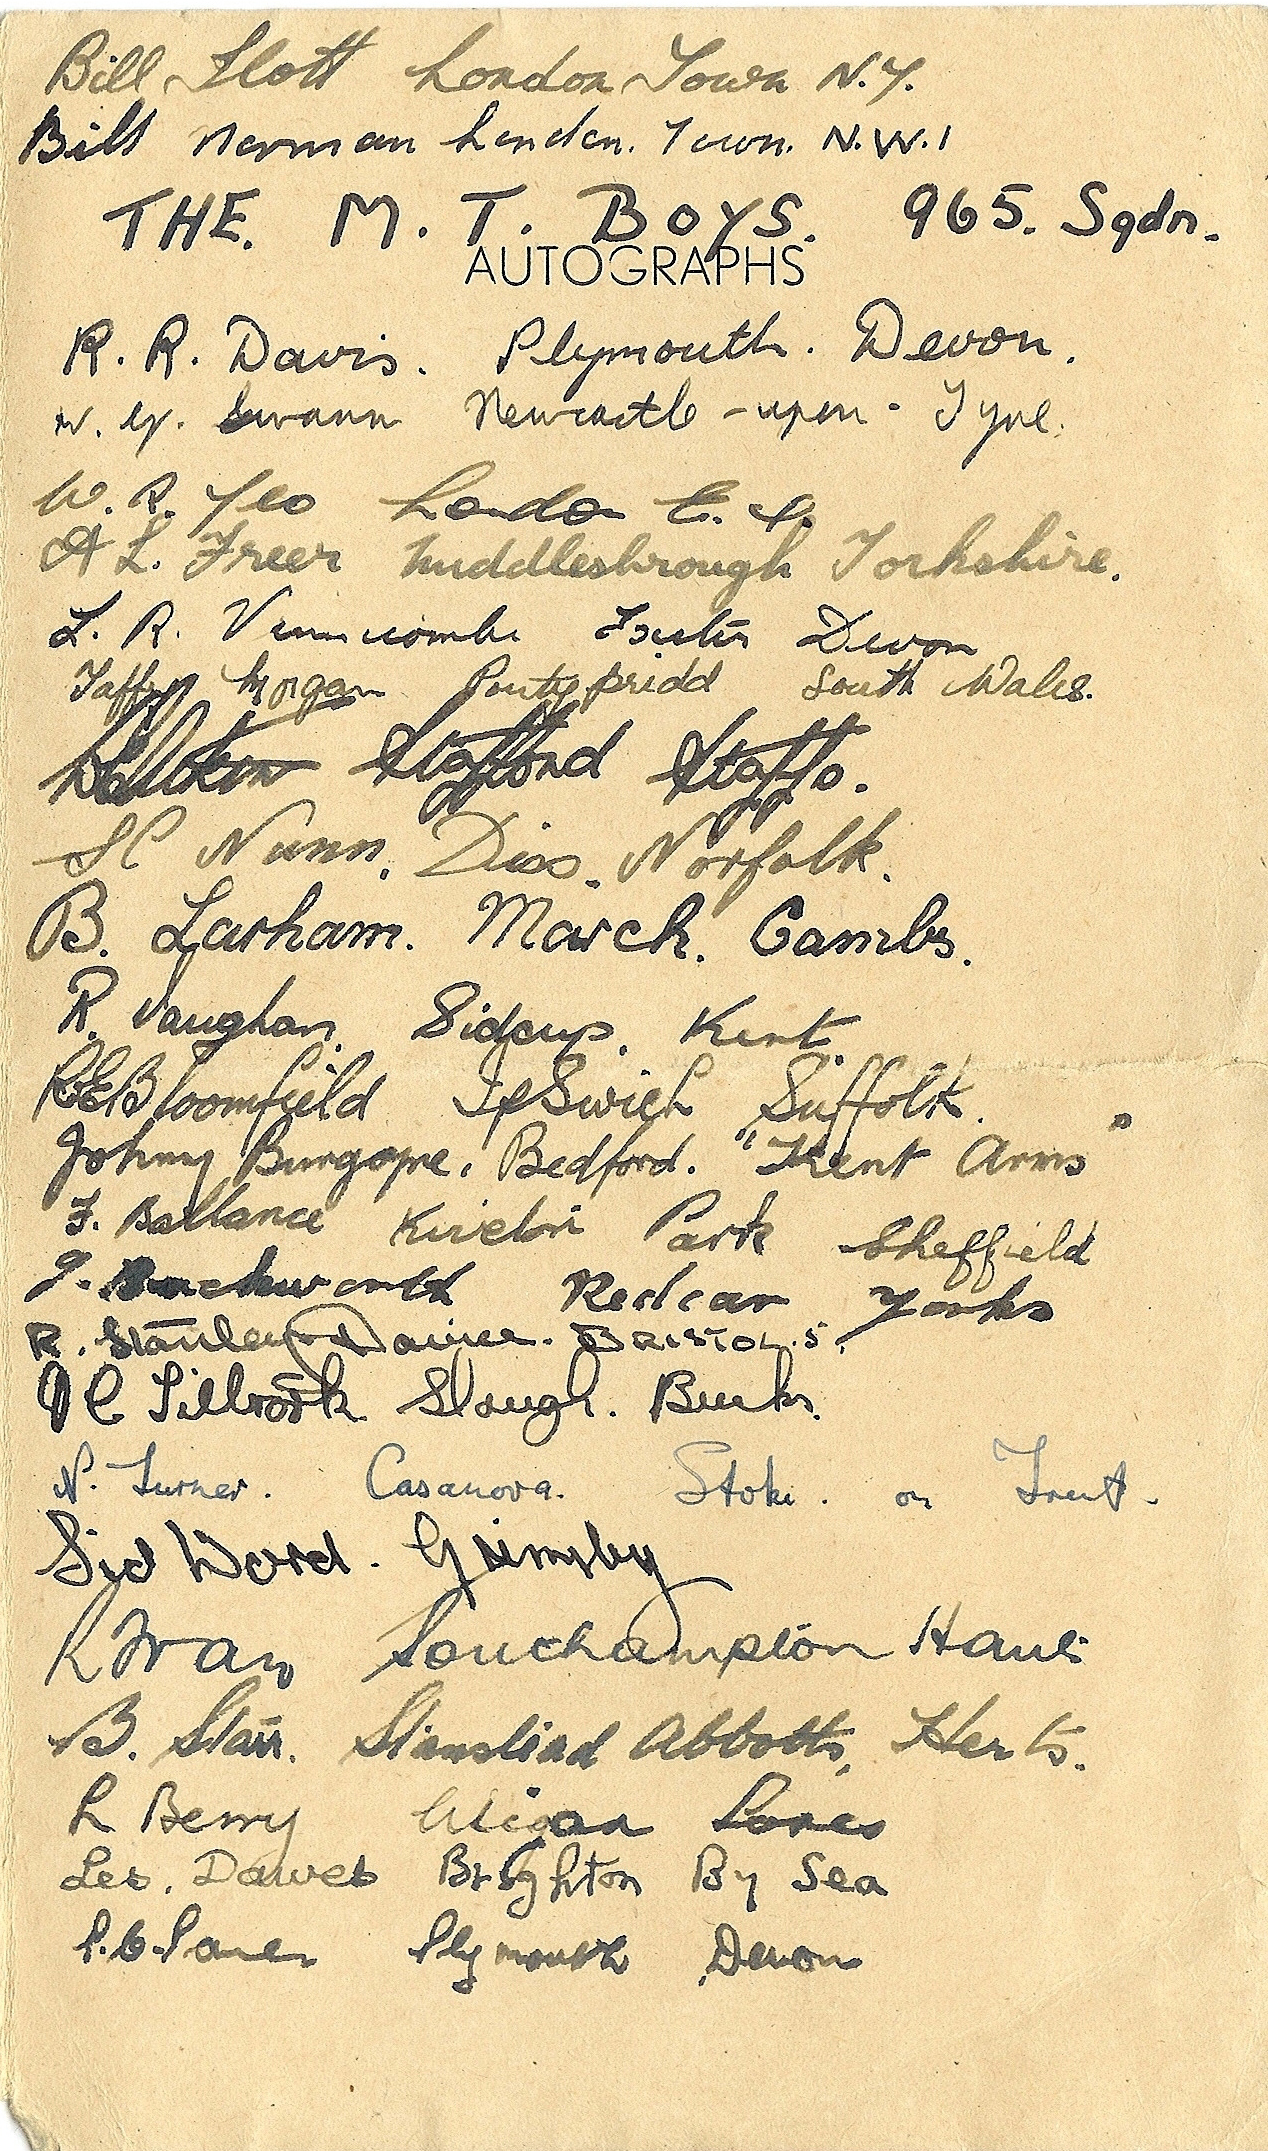 Bill Slott London Town N.7.
Bill Norman London. Town. N.W.1
THE. M. T. BOYS. 965. Sqdn.
AUTOGRAPHS
R. R. Davis. Plymouth. Devon.
W. Swann Newcastle-upon-Tyne.
W. R. Yeo London E.
A L. Freer Middlesbrough Yorkshire.
L. R. Vinnicombe Exeter Devon
Taffy Morgan Pontypridd South Wales.
Stafford Staffs.
Nunn. Diss. Norfolk.
B. Larham. March. Cambs.
R. Vaughan. Sidcup. Kent.
R.E. Bloomfield Ipswich Suffolk.
Johny Burgoyne. Bedford. "Kent Arms"
F. Ballance Kiveton Park Sheffield
Redcar Yorks
R. Stanley Bristol. 5.
Tillbrook Slough. Bucks.
N. Turner. Casanova. Stoke. on Trent.
Sid Word. Grimsby
Southampton Hants
B. Starr. Stanstead Abbotts, Herts.
L Berry Wigan Lancs
Les. Dawes Brighton By Sea
Plymouth Devon